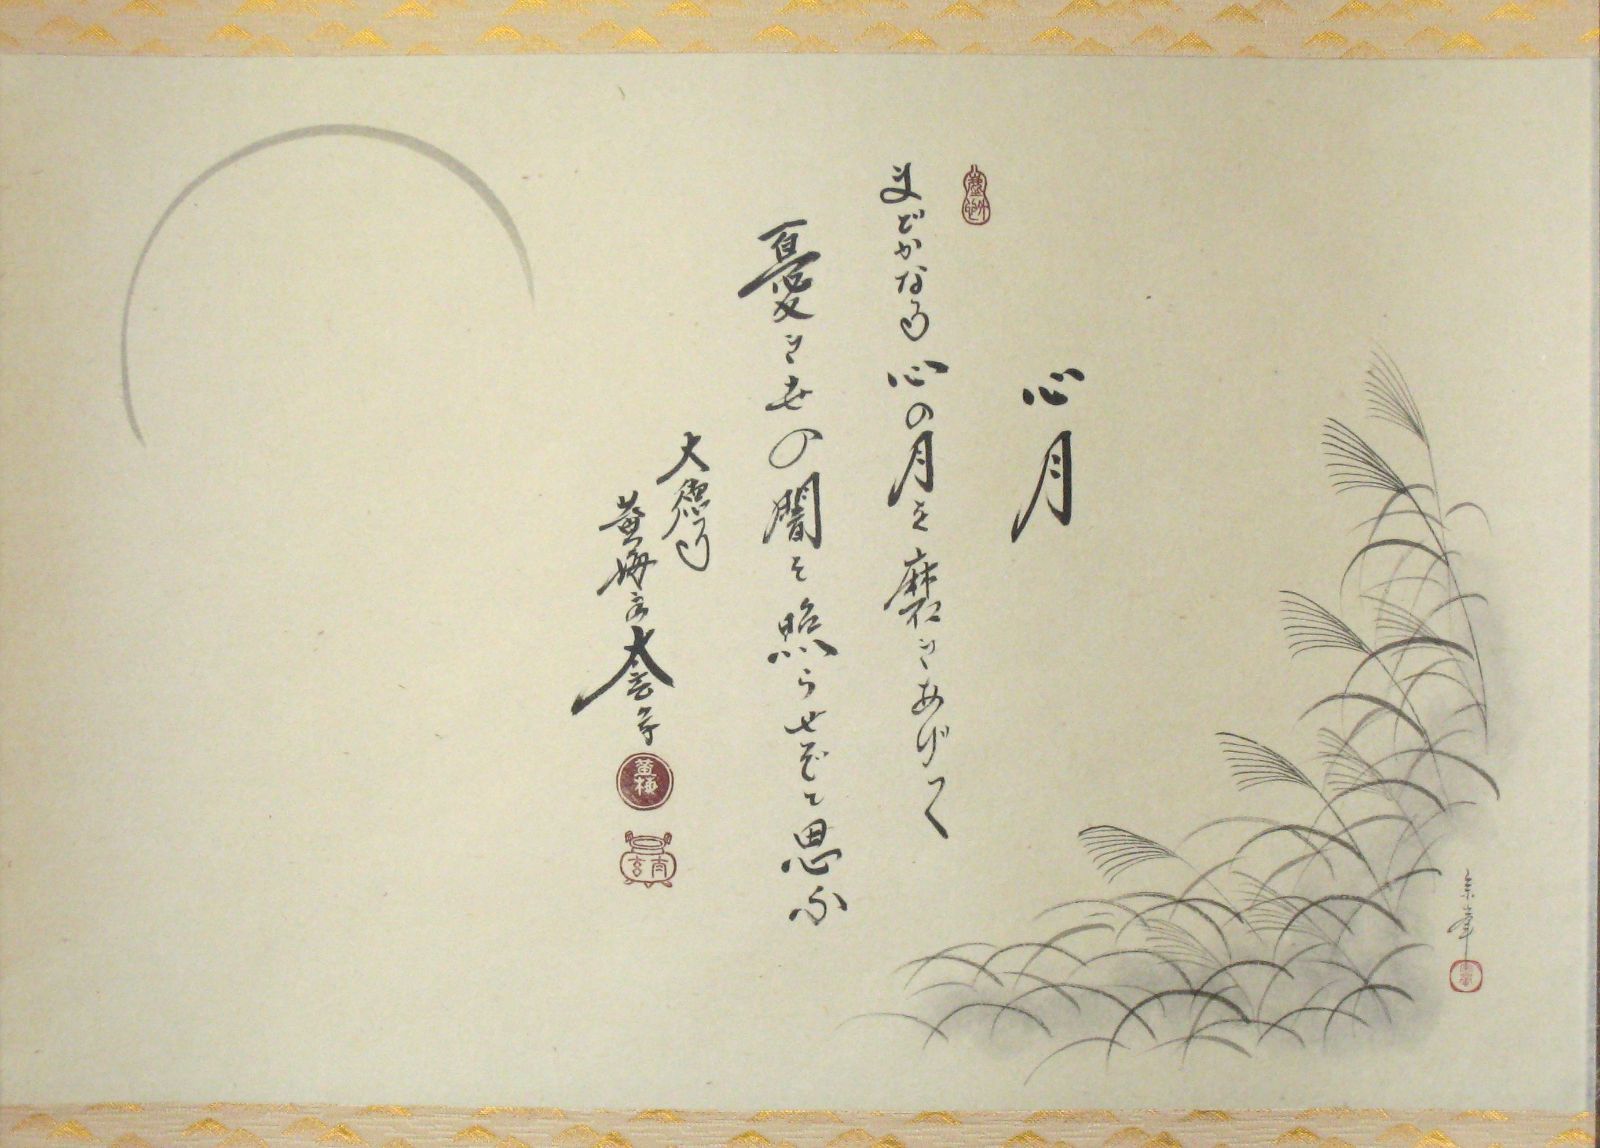 心月
まどかなる心の月を磨きあげて
憂き世の闇を照らせ と思ふ
大徳
黄梅
黄梅